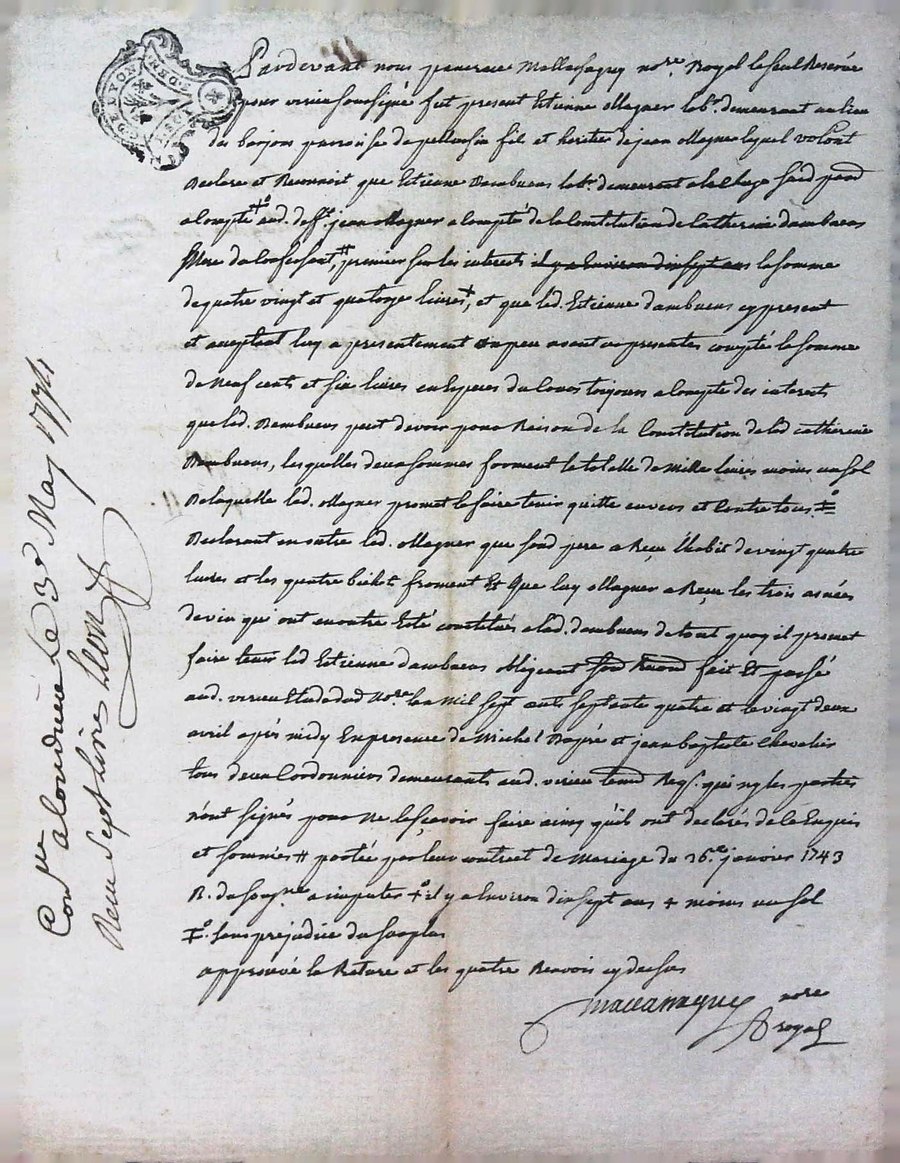 GEN. DE LYON
Pardevant nous notre. Royal le seul Reservé
pour virieu soussigné fut present Estienne Magner labr. demeurant au lieu
du parroisse de pellussin fils et heritier de jean Magner lequel volont
Declare et Reconnoit que Estienne Dambuens labr. demeurant
acompte aud. deft. jean Magner acompte de la Constitution de Catherine dambuens
Mere du Confessant, # premier sur les interets il y a Environ dixsept ans la somme
de quatre vingt et quatorze livres +, et que led. Estienne dambuens cy present
et acceptant luy a presentement un peu avant ces presentes compté la somme
de Neuf cents et six livres en Especes du Cours toujours acompte des interest
que led. Dambuens peut devoir pour Raison de la Constitution de lad Catherine
Dambuens, lesquelles deux sommes forment la totalle de Mille livres moins un sol
De laquelle led. Magner promet le faire tenir quitte envers et Contre tous.
Declarant en outre led. Magner que sond pere a Reçu lhabit de vingt quatre
livres et les quatre bichet froment Et Que luy Magner a Reçu les trois asnées
de vin qui ont en outre Esté constitués a lad. dambuens de tout quoy il promet
faire tenir led Estienne dambuens obligeant fait Et passé
aud. virieu Etude dud Nore. lan Mil sept cents septante quatre et le vingt deux
avril après midy En presence de Michel et jean baptiste Chevalier
tous deux Cordonniers demeurants aud. virieu Reqs. qui ny les parties
n'ont signés pour ne sçavoir faire ainsy qu'ils ont declarés de ce Enquis
et sommés # portée par leur contract de Mariage du 26.e janvier 1743
R. a imputer il y a Environ dixsept ans + moins un sol
sans prejudice du surplus
approuvé la Rature et les quatre Renvois cy dessus
nore
royal
Conlle. a Condrieu Le 3e May 1774
Reçu sept livres